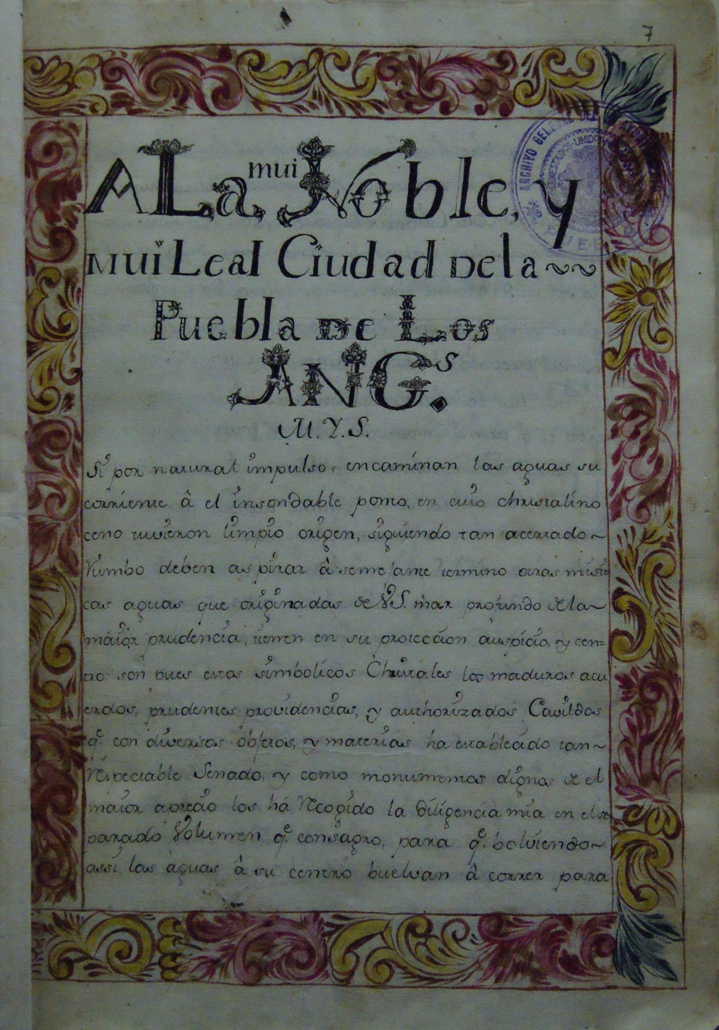 7
A La mui Noble, y
mui Leal Ciudad de la
Puebla de Los
ANG.s
M.Y.S.
Si por natural impulso, encaminan las aguas su
corriente â el insondable ponto, en cuio christalino
ceno tuvieron limpio origen, siguiendo tan acertado
Rumbo deben aspirar â semejante termino otras misti
cas aguas que originadas de VS. mar profundo de la
maior prudencia, tienen en su proteccion auspicio, y cen-
tro: son pues estos simbolicos Christales los maduros acu
erdos, prudentes providencias, y authorizados Cavildos
q.e con diversos objetos, y materias ha establecido tan
Respectable Senado, y como monumentos dignos de el
maior aprecio los há Recogido la diligencia mia en el se
parado Volumen q.e consagro, para q.e bolviendo
assi las aguas â su centro buelvan â correr para
ARCHIVO GENERAL DEL
ESTADOS UNIDOS
PUEBLA